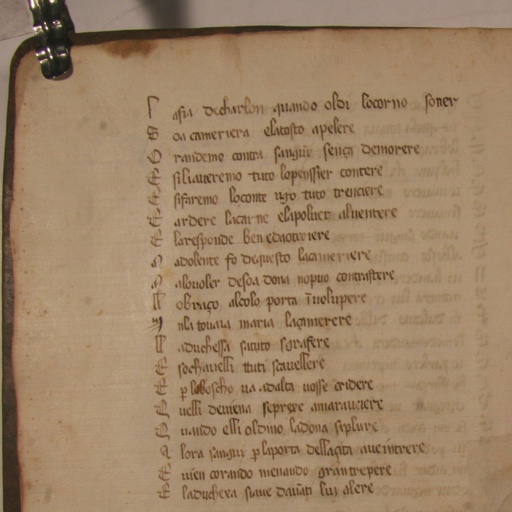 L asia decharlon quando oldi locorno soner
S oa cameriera elatosto apelere
G randemo contra sanguin sença demorere
E sili averemo tuto lopenssier contere
E sifaremo loconte ugo tuto trenciere
E ardere lacarne elapoluer aluentere
E laresponde ben edaotroiere
M adolente fo dequesto lacameriere
M a lovoler desoa dona nopuo contrastere
Il ob raço alcolo porta inuolupere
In la touaia maria laçamerere
La duchessa sa tuto sgrafere
E sochauelli tuti scauellere
E p loboscho ua adalta vosse cridere
Quelli deuiena seprexe amarauiere
Quando elli oldino ladona seplure
A lora sanguin p laporta dellaçita aue intrere
E uien corando menando gran trepere
E laduchexa siaue dauati lui alere